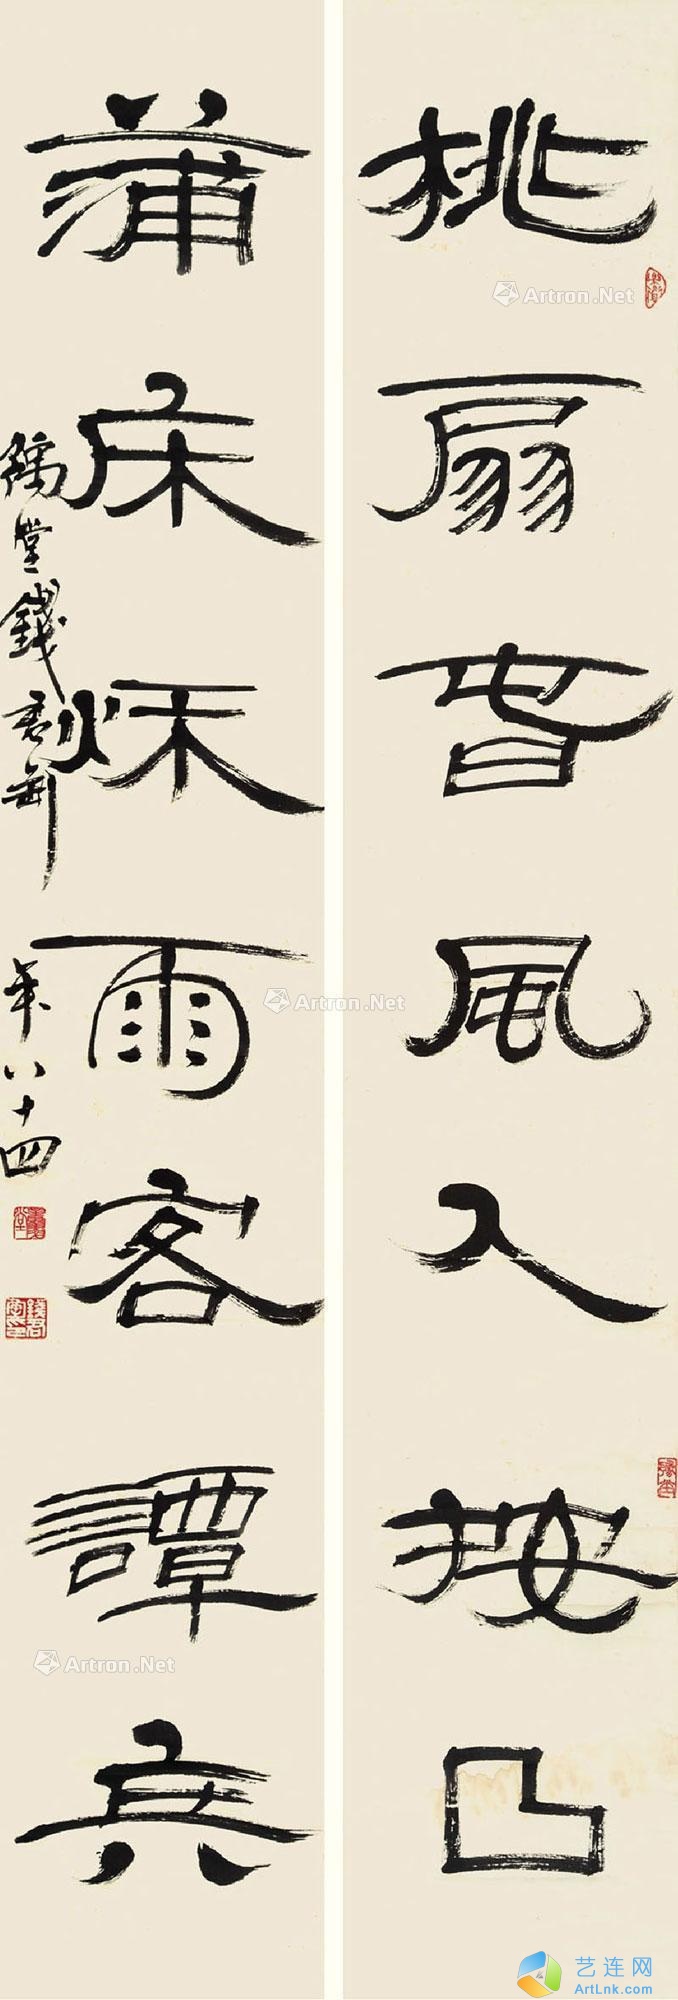 桃扇旾風人按曲
蒲床秌雨客譚兵
豫堂錢君匋年八十四
Artron.Net
Artron.Net
Artron.Net
艺连网
ArtLnk.com